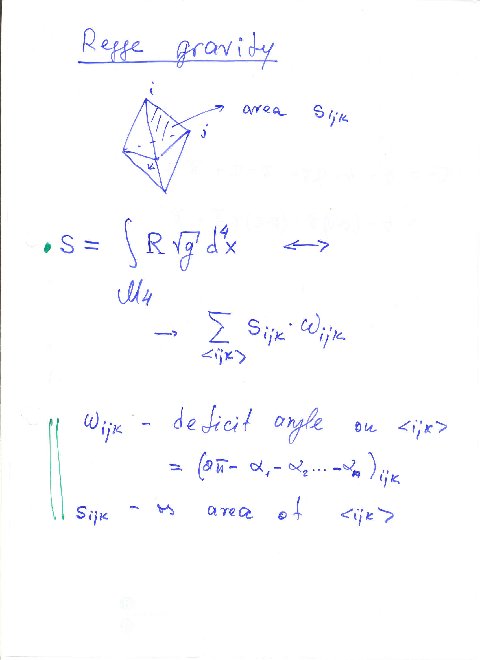 Regge gravity
i
area S_{ijk}
j
k
S = ∫_{M_4} R √g d^4x ⟷
→ Σ_{<ijk>} S_{ijk} · ω_{ijk}
ω_{ijk} - deficit angle on <ijk>
= (2π - α_1 - α_2 ... - α_n)_{ijk}
S_{ijk} - is area of <ijk>